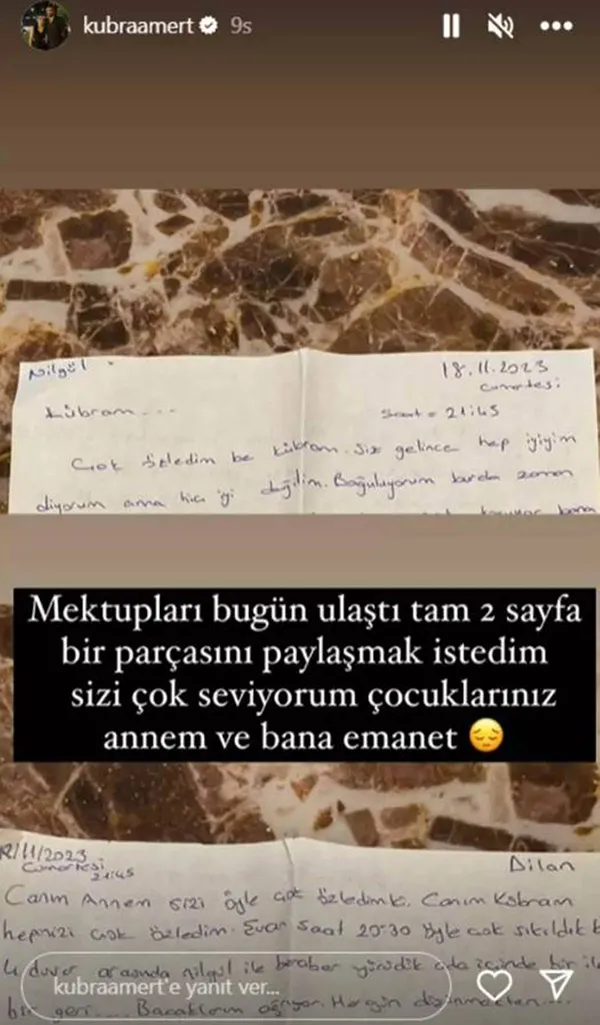 kubraamert 9s
Nilgül
18.11.2023
Cumartesi
Kübram...
Saat = 21:45
Çok özledim be Kübram. Siz gelince hep iyiyim
diyorum ama hiç iyi değilim. Boğuluyorum burda zaman
bana
Mektupları bugün ulaştı tam 2 sayfa
bir parçasını paylaşmak istedim
sizi çok seviyorum çocuklarınız
annem ve bana emanet 😔
8/11/2023
Cumartesi
21:45
Dilan
Canım Annem sizi öyle çok özledimki. Canım Kübram
hepinizi çok özledim. Saat 20:30 öyle çok sıkıldık
4 duvar arasında nilgül ile beraber yürüdük oda içinde bir ile
bir geri.... Bacaklarım ağrıyor. Hergün düşünmekten....
kubraamert'e yanıt ver...